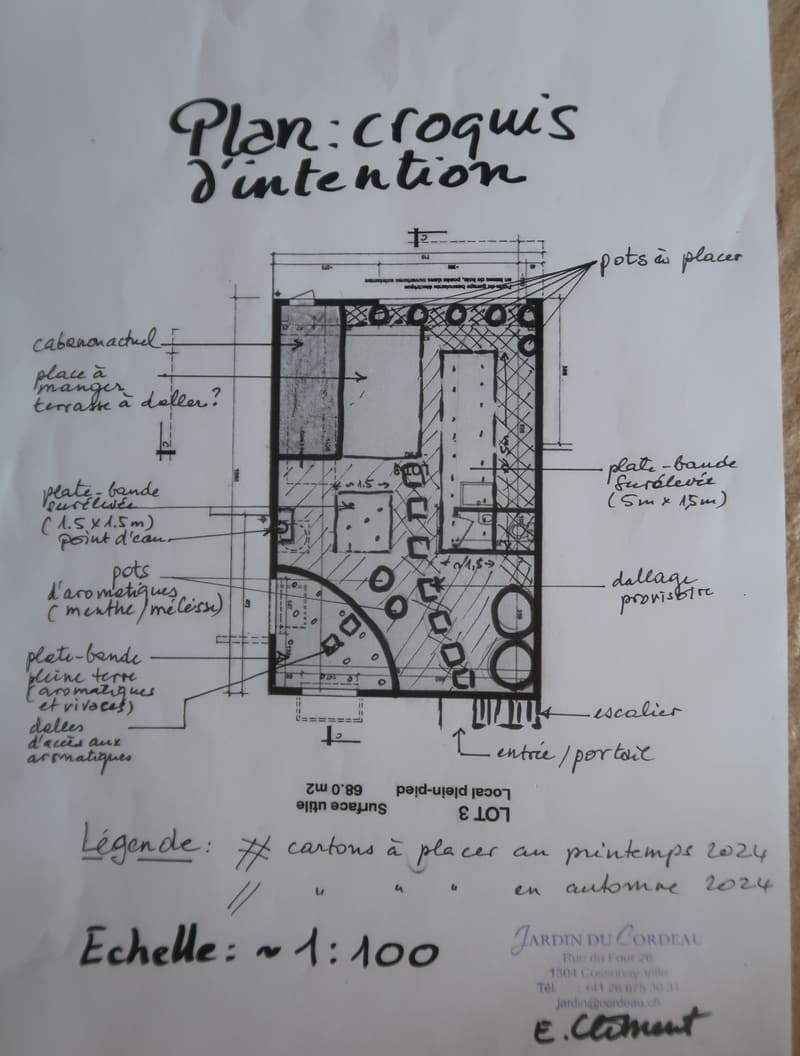 Plan : croquis
d'intention
pots à placer
cabanon actuel
place à
manger
terrasse à daller ?
plate-bande
surélevée
(1.5 x 1.5m)
point d'eau
~1.5
5m
plate-bande
surélevée
(5m x 1,5m)
~1,5
pots
d'aromatiques
(menthe/mélisse)
dallage
provisoire
plate-bande
pleine terre
(aromatiques
et vivaces)
dalles
d'accès aux
aromatiques
escalier
entrée/portail
LOT 3
Local plein-pied
Surface utile
68.0 m2
Légende : # cartons à placer au printemps 2024
// " " " en automne 2024
Echelle : ~ 1:100
JARDIN DU CORDEAU
Rue du Four 26
1304 Cossonay-Ville
Tél. : +41 26 675 30 31
jardin@cordeau.ch
E. Clément